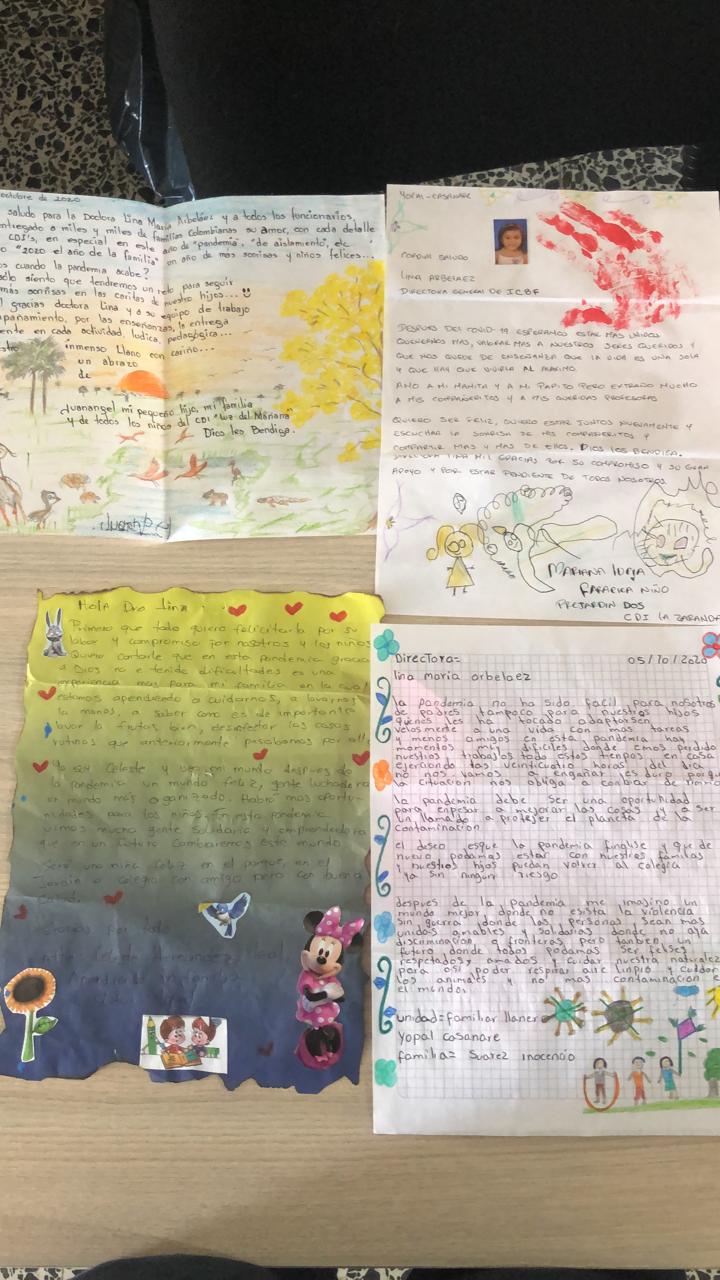 octubre de 2020
saludo para la Doctora Lina Maria Arbeláez y a todos los funcionarios,
entregado a miles y miles de familias Colombianas su amor, con cada detalle
CDI's, en especial en este año de "pandemia", "de aislamiento", etc
"2020 el año de la familia" un año de mas sonrisas y niños felices...
os cuando la pandemia acabe?
sólo siento que tendremos un reto para seguir
más sonrisas en las caritas de nuestro hijos...
gracias doctora Lina y a su equipo de trabajo
apañamiento, por las enseñanzas, la entrega
ente en cada actividad lúdica, pedagógica...
inmenso Llano con cariño...
un abrazo
de
Juanangel mi pequeño hijo, mi familia
y de todos los niños del CDI "Luz del Mañana"
Dios les Bendiga.
YOPAL - CASANARE
CORDIAL SALUDO
LINA ARBELAEZ
DIRECTORA GENERAL DE ICBF
DESPUES DEL COVID-19 ESPERAMOS ESTAR MAS UNIDOS
QUERERNOS MAS, VALORAR MAS A NUESTROS SERES QUERIDOS Y
QUE NOS QUEDE DE ENSEÑANZA QUE LA VIDA ES UNA SOLA
Y QUE HAY QUE VIVIRLA AL MAXIMO.
AMO A MI MAMITA Y A MI PAPITO PERO EXTRAÑO MUCHO
A MIS COMPAÑERITOS Y A MIS QUERIDAS PROFESORAS
QUIERO SER FELIZ, QUIERO ESTAR JUNTOS NUEVAMENTE Y
ESCUCHAR LA SONRISA DE MIS COMPAÑERITOS Y
COMPARTIR MAS Y MAS DE ELLOS. DIOS LOS BENDIGA.
LINA MIL GRACIAS POR SU COMPROMISO Y SU GRAN
APOYO Y POR ESTAR PENDIENTE DE TODOS NOSOTROS
MARIANA
NIÑO
PREJARDIN DOS
CDI LA ZARANDA
Hola Dra Lina
Primero que todo quiero felicitarla por su
labor y compromiso por nosotros y los niños
Quiero contarle que en esta pandemia gracia
a Dios no e tenido dificultades es una
experiencia mas para mi familia en la cual
estamos aprendiendo a cuidarnos, a lavarnos
la manos, a saber como es de importante
lavar la frutas bien, desinfectar las cosas
rutinas que anteriormente pasabamos por alto
Yo soy Celeste y veo un mundo despues de
la pandemia un mundo feliz, gente luchadora
un mundo más organizado. Habrá mas oportu-
nidades para los niños. En esta pandemia
vimos mucha gente solidaria y emprendedora
que en un futuro cambiaremos este mundo
Seré una niña feliz en el parque, en el
Jardin o colegio con amigo pero con buena
Salud.
por todo
Directora= 05/10/2020
lina maria arbelaez
la pandemia no ha sido facil para nosotros
de padres tampoco para nuestros hijos
quienes les ha tocado adaptarsen
velosmente a una vida con mas tareas
y menos amigos en esta pandemia hay
momentos muy dificiles donde emos perdido
nuestros trabajos todo estos tienpos en casa
ejerciendo las veinticuatro horas del dia
no nos vamos a engañar es duro porque
la cituación nos obliga a canbiar de ritmo
la pandemia debe ser una oportunidad
para enpesar a mejorar las cosas y a ser
un llamado a proteser el planeta de la
contaminación
el deseo esque la pandemia finalise y que de
nuevo podamos estar con nuestras familias
y nuestros hijos puedan volver al colegio
ya sin ningun riesgo
despues de la pandemia me imagino un
mundo mejor donde no esista la violencia
sin guerra donde las personas sean mas
unidas amables y solidarias donde no aja
discriminación a fronteras pero tanben un
futuro donde todos podamos ser felises
respetados y amados y cuidar nuestra naturaleza
para asi poder respirar aire linpio y cuidar
los animales y no mas contaminación e
el mundo.
unidad= familiar llaner
Yopal casanare
familia= Suarez inocencio